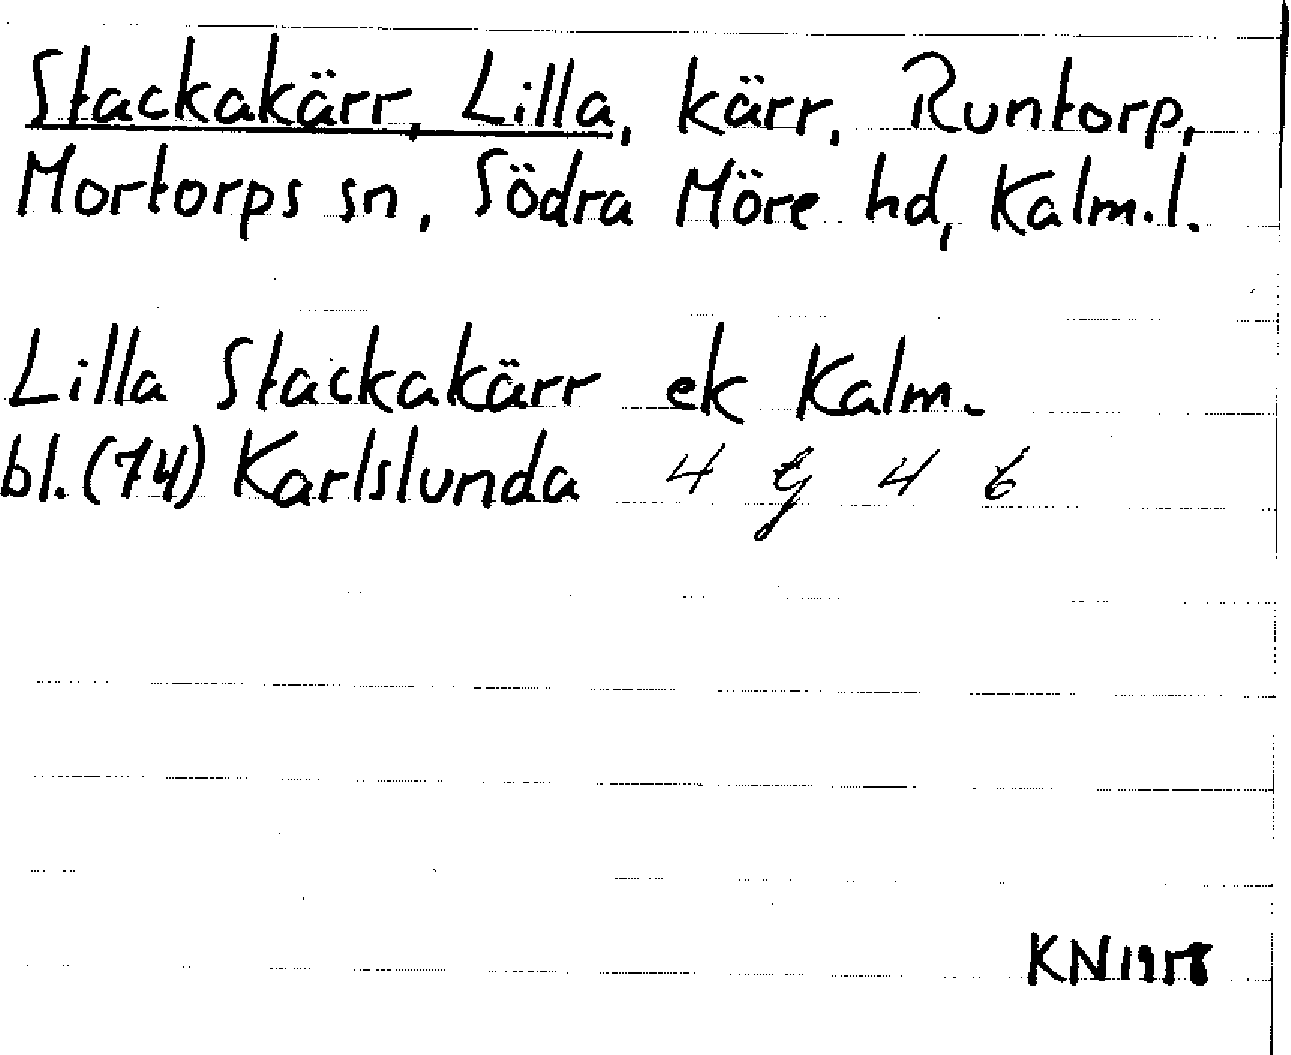 Stackakärr, Lilla, kärr, Runtorp,
Mortorps sn, Södra Möre hd, Kalm.l.
Lilla Stackakärr ek Kalm.
bl. (74) Karlslunda 4 G 4 b
KN 1958